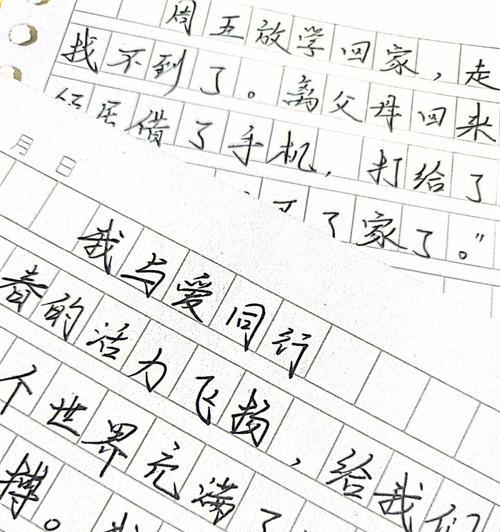 周五放学回家，走
找不到了。离父母回来
借了手机，打给了
了家了。”
月 日
我与爱同行
春的活力飞扬，给我们
个世界充满了
搏。我